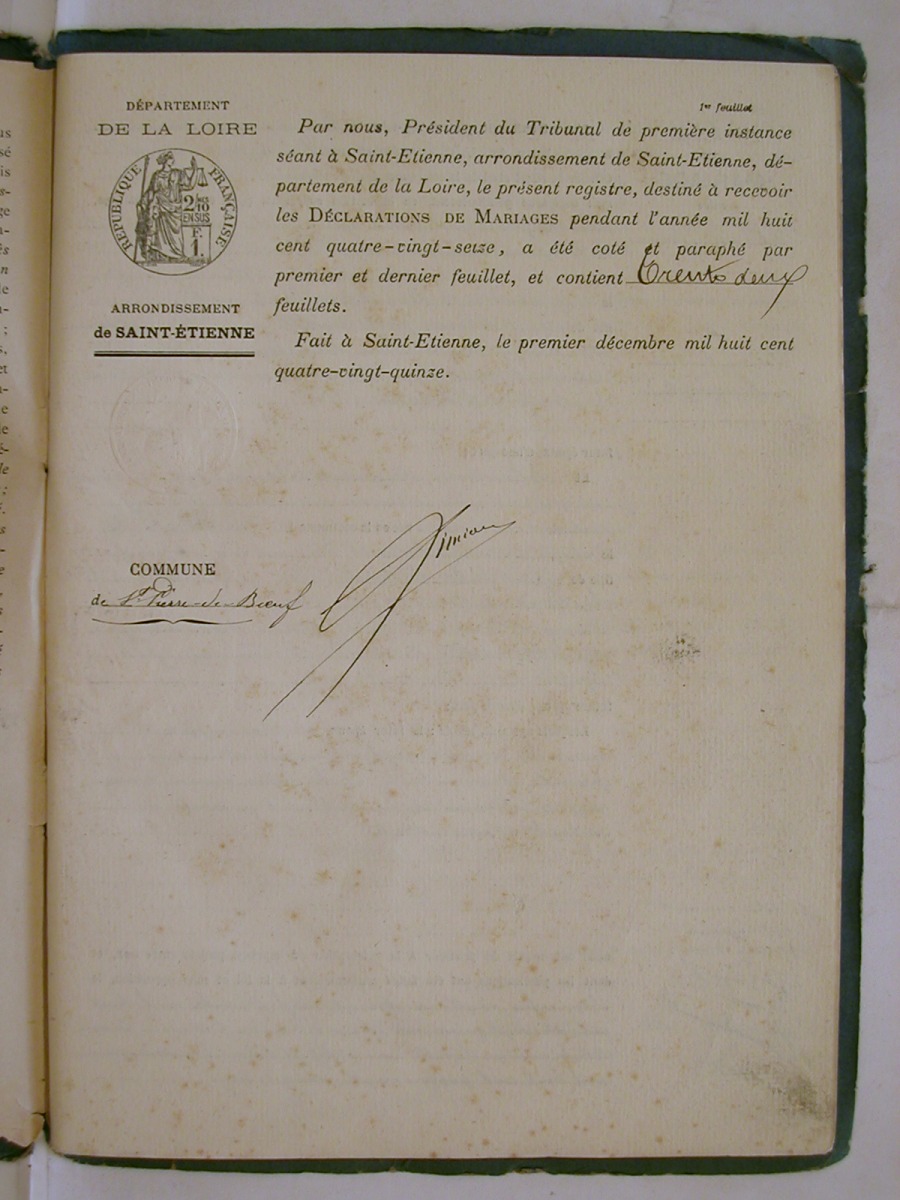 DÉPARTEMENT
DE LA LOIRE
RÉPUBLIQUE FRANÇAISE
2/10
EN SUS
F.
1.
ARRONDISSEMENT
de SAINT-ÉTIENNE
1er feuillet
Par nous, Président du Tribunal de première instance
séant à Saint-Etienne, arrondissement de Saint-Etienne, dé-
partement de la Loire, le présent registre, destiné à recevoir
les DÉCLARATIONS DE MARIAGES pendant l'année mil huit
cent quatre-vingt-seize, a été coté et paraphé par
premier et dernier feuillet, et contient Trente deux
feuillets.
Fait à Saint-Etienne, le premier décembre mil huit cent
quatre-vingt-quinze.
COMMUNE
de St Pierre-de-Bœuf